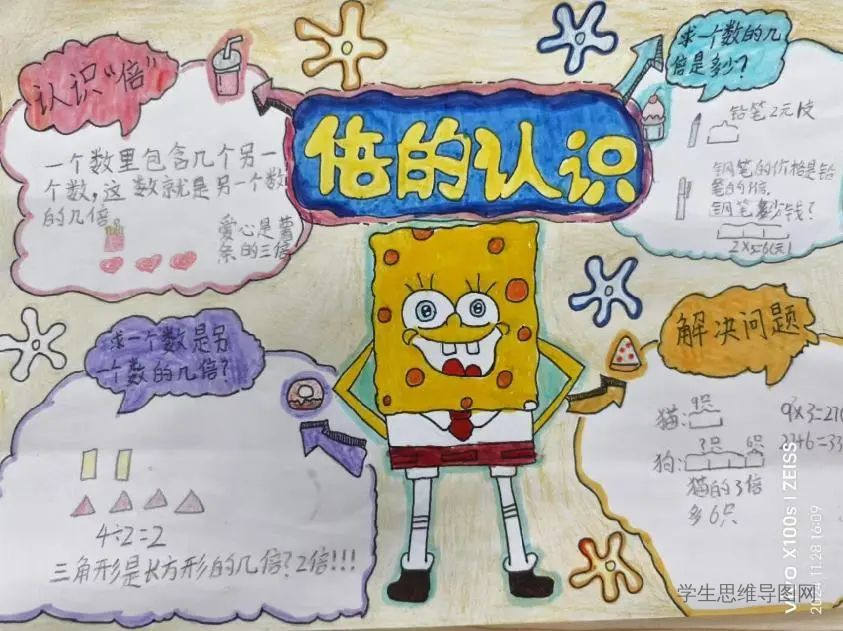 倍的认识
认识“倍”
一个数里包含几个另一
个数,这数就是另一个数
的几倍
爱心是薯
条的三倍
求一个数的几
倍是多少?
铅笔2元1支
钢笔的价格是铅
笔的
钢笔多少钱?
求一个数是另
一个数的几倍?
4÷2=2
三角形是长方形的几倍?2倍!!!
解决问题
猫:
9只
狗:
3只
6只
猫的3倍
多6只
9×3=27(
27+6=33
VIVO X100s | ZEISS
2024.11.28 16:09
学生思维导图网